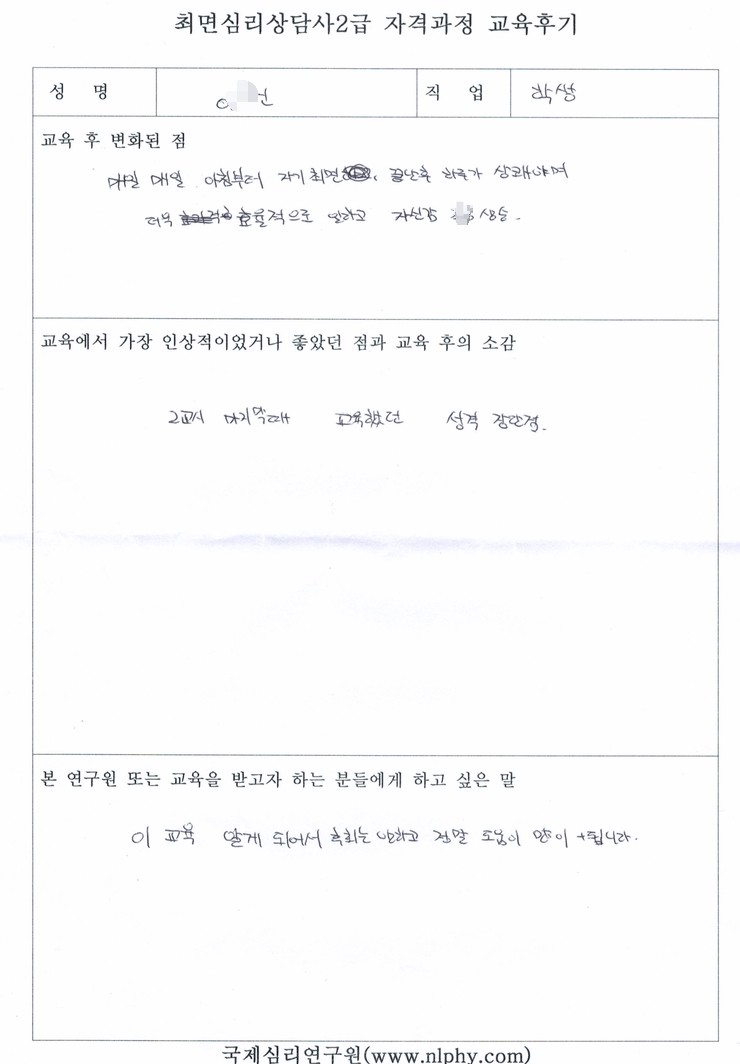 최면심리상담사2급 자격과정 교육후기
성 명
직 업 학생
교육 후 변화된 점
매일 매일 아침부터 자기최면 끝난후 하루가 상쾌하며
더욱 효율적으로 말하고 자신감 생승.
교육에서 가장 인상적이었거나 좋았던 점과 교육 후의 소감
2교시 마지막때 교육했던 성격 장단점.
본 연구원 또는 교육을 받고자 하는 분들에게 하고 싶은 말
이 교육 알게 되어서 후회는 안하고 정말 도움이 많이 됩니다.
국제심리연구원(www.nlphy.com)